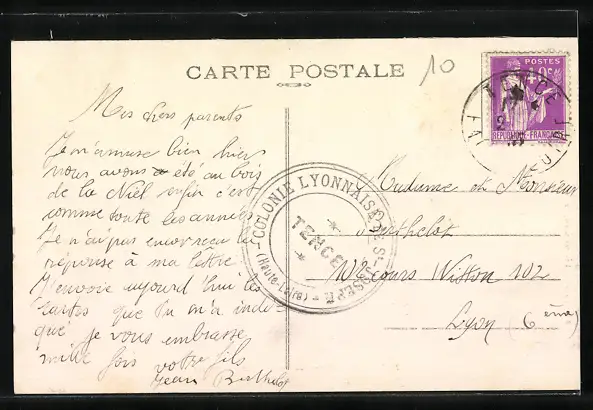 CARTE POSTALE
10
Mes chers parents
Je m'amuse bien hier
nous avons été au bois
de la Niel enfin c'est
comme toute les années
Je n'ai pas encore recu la
réponse à ma lettre
J'envoie aujourd'hui les
cartes que tu m'a indi-
qué je vous embrasse
mille fois votre fils
Jean Berthelot
COLONIE LYONNAISE DE St JOSEPH
TENCE
(Haute-Loire)
POSTES
REPUBLIQUE FRANÇAISE
TENCE
Madame et Monsieur
Berthelot
102 Cours Vitton 102
Lyon (6ème)